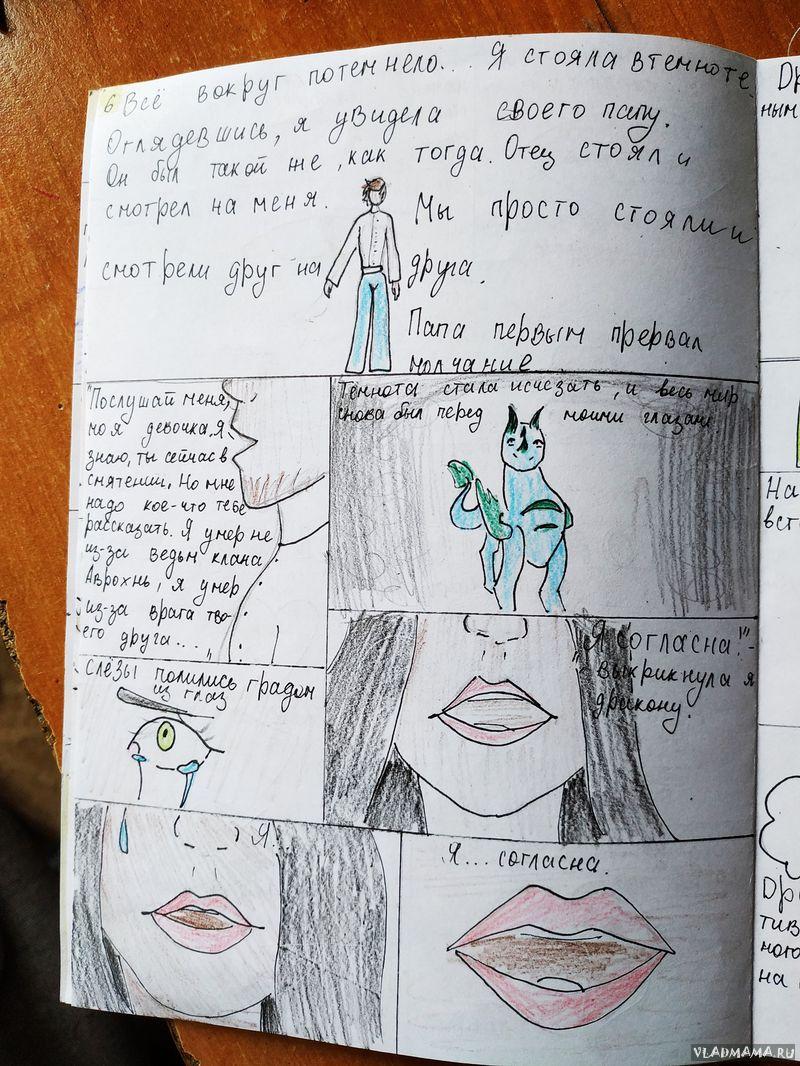 6 Всё вокруг потемнело... Я стояла в темноте.
Оглядевшись, я увидела своего папу.
Он был такой же, как тогда. Отец стоял и
смотрел на меня. Мы просто стояли и
смотрели друг на друга.
Папа первым прервал
молчание
"Послушай меня,
моя девочка. Я
знаю, ты сейчас в
смятении. Но мне
надо кое-что тебе
рассказать. Я умер не
из-за ведьм клана
Аврохнь, я умер
из-за врага тво-
его друга..."
Темнота стала исчезать, и весь мир
снова был перед моими глазами
Слёзы полились градом
из глаз
"Я согласна!"-
выкрикнула я
дракону.
Я...
Я... согласна.
Др
ным
На
вст
Дра
тив
ного
на
VLADMAMA.RU